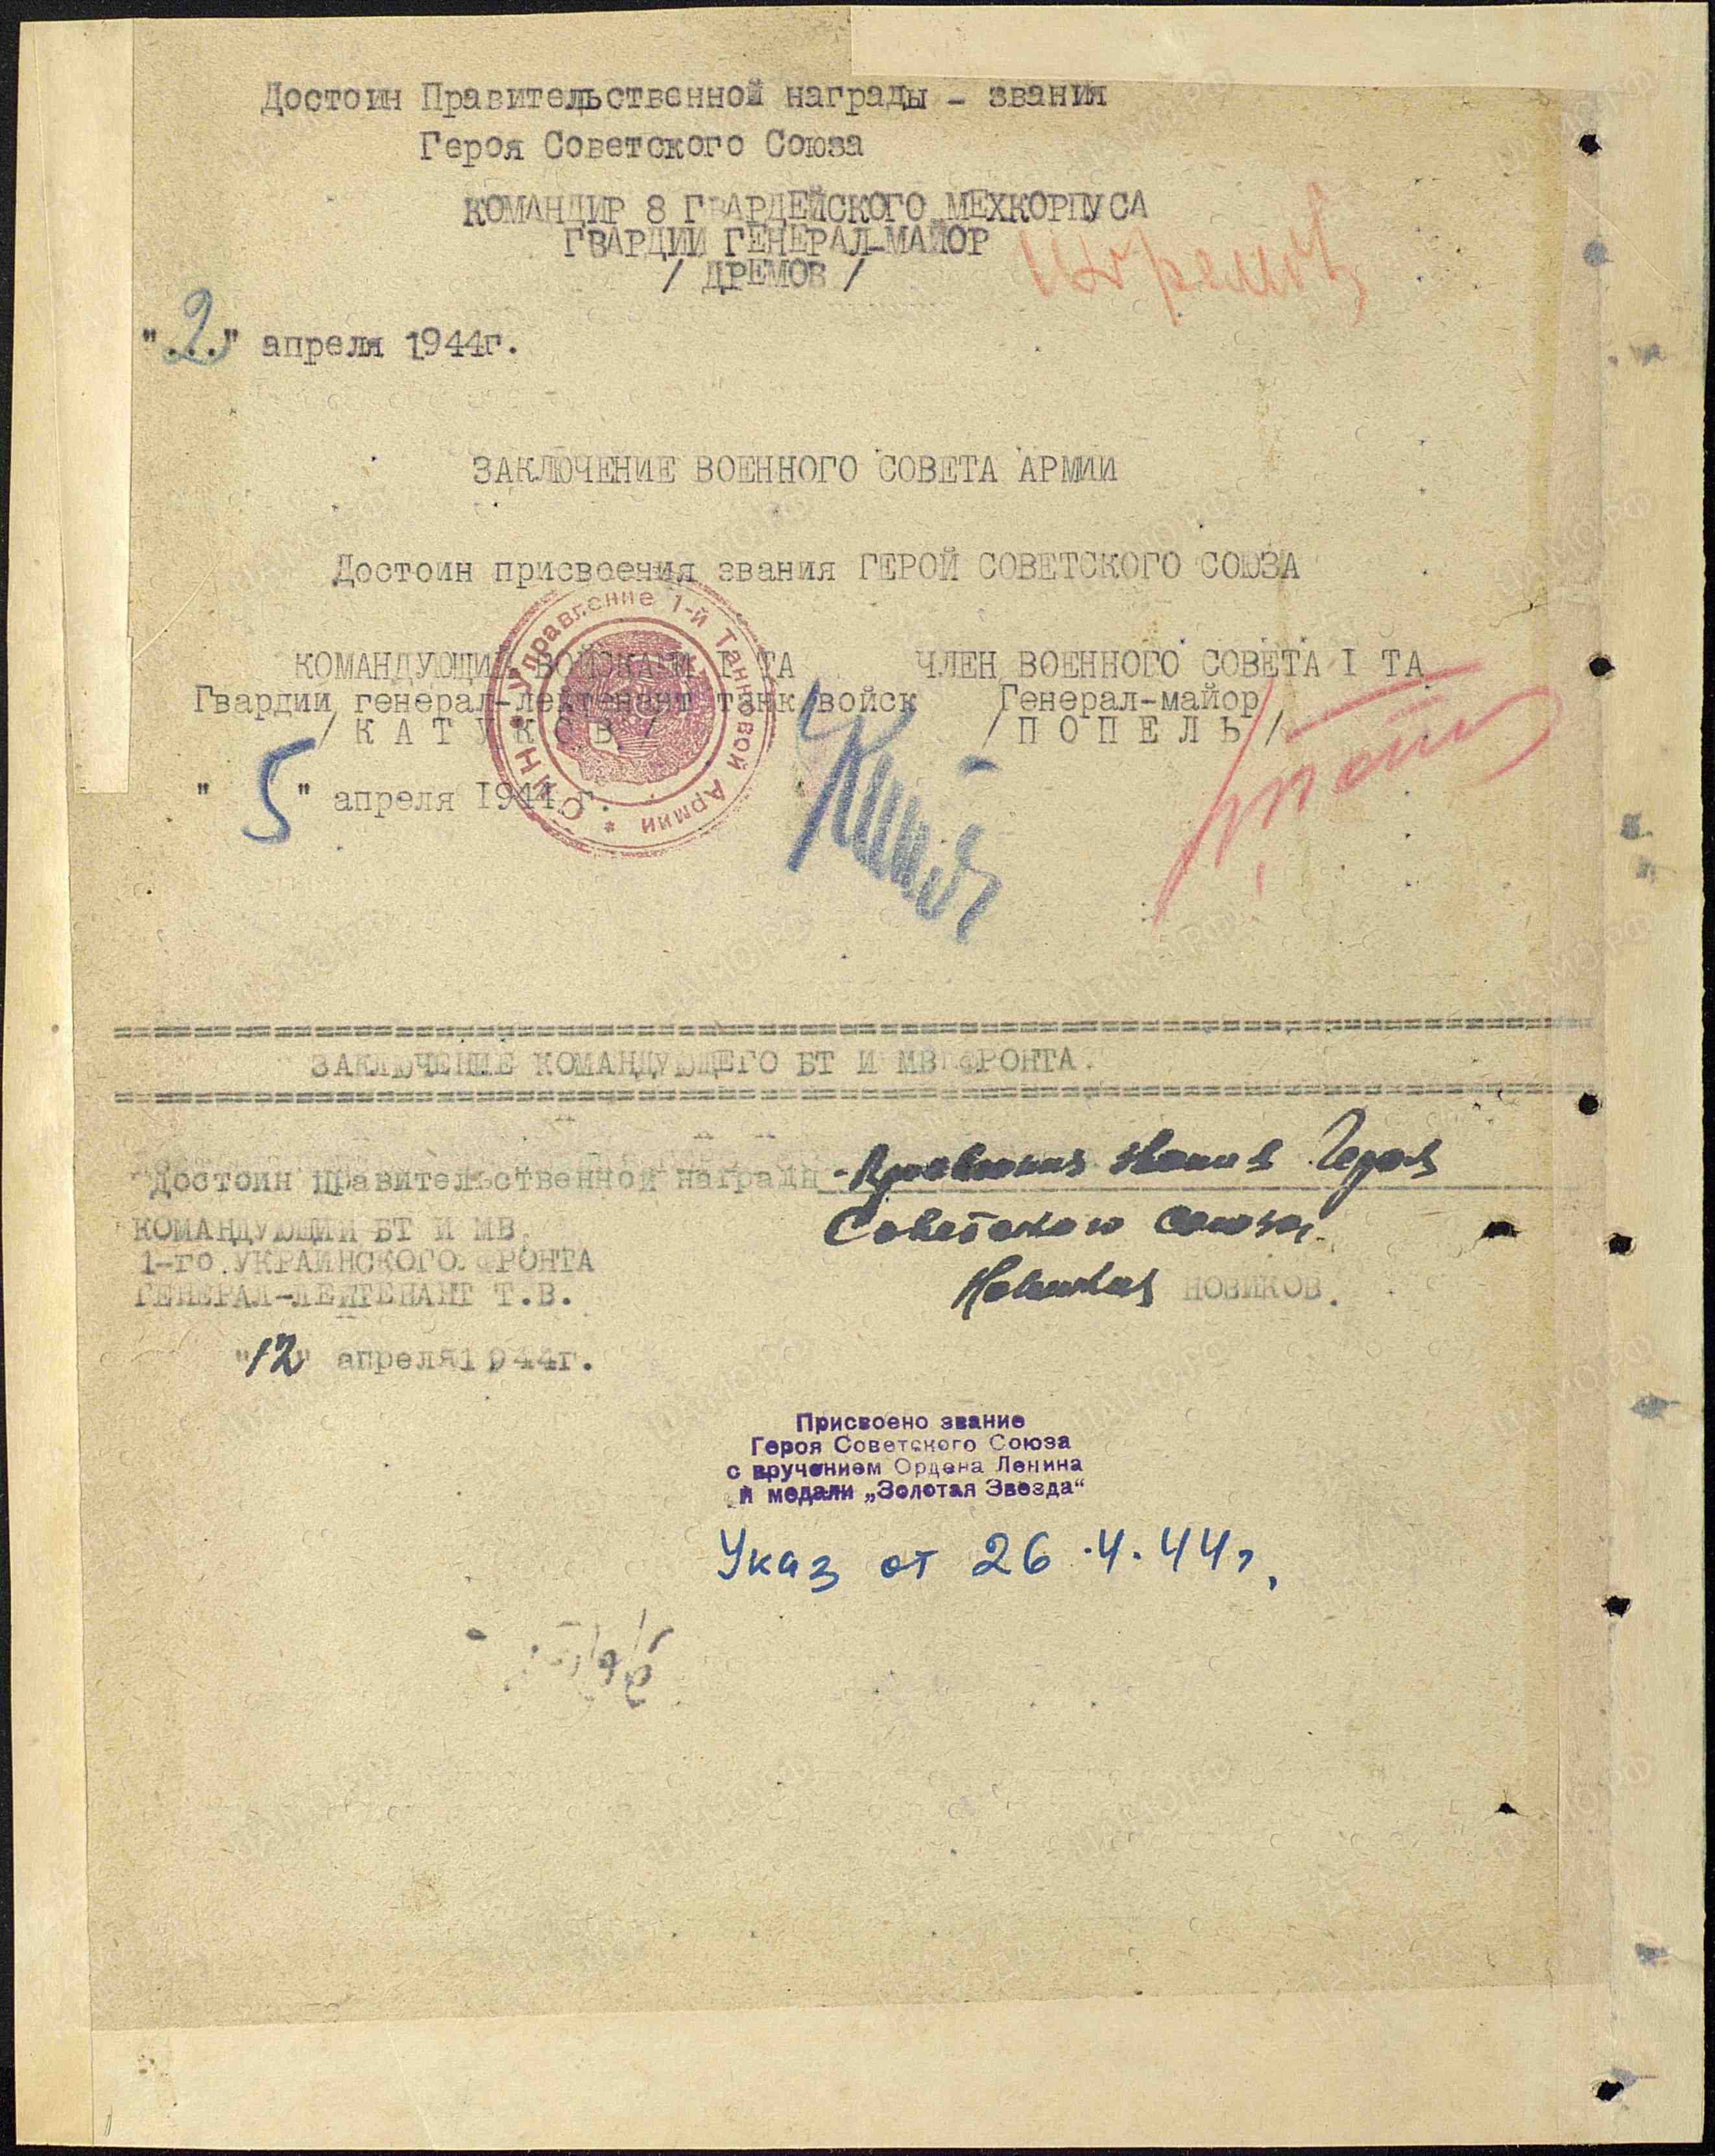 Достоин Правительственной награды - звания
Героя Советского Союза
КОМАНДИР 8 ГВАРДЕЙСКОГО МЕХКОРПУСА
ГВАРДИИ ГЕНЕРАЛ-МАЙОР
/ ДРЕМОВ /
"2" апреля 1944г.
ЗАКЛЮЧЕНИЕ ВОЕННОГО СОВЕТА АРМИИ
Достоин присвоения звания ГЕРОЙ СОВЕТСКОГО СОЮЗА
Управление 1-й Танковой Армии * С
КОМАНДУЮЩИЙ ВОЙСКАМИ I ТА
Гвардии генерал-лейтенант танк войск
/ К А Т У К О В /
ЧЛЕН ВОЕННОГО СОВЕТА I ТА
Генерал-майор
/ П О П Е Л Ь /
" 5 " апреля 1944 г.
ЗАКЛЮЧЕНИЕ КОМАНДУЮЩЕГО БТ И МВ ФРОНТА.
Достоин правительственной награды - Присвоения звания Героя
Советского Союза.
КОМАНДУЮЩИЙ БТ И МВ
1-го УКРАИНСКОГО ФРОНТА
ГЕНЕРАЛ-ЛЕЙТЕНАНТ Т.В.
НОВИКОВ.
"12" апреля 1944г.
Присвоено звание
Героя Советского Союза
с вручением Ордена Ленина
и медали „Золотая Звезда“
Указ от 26.4.44г.
ЦАМО.РФ